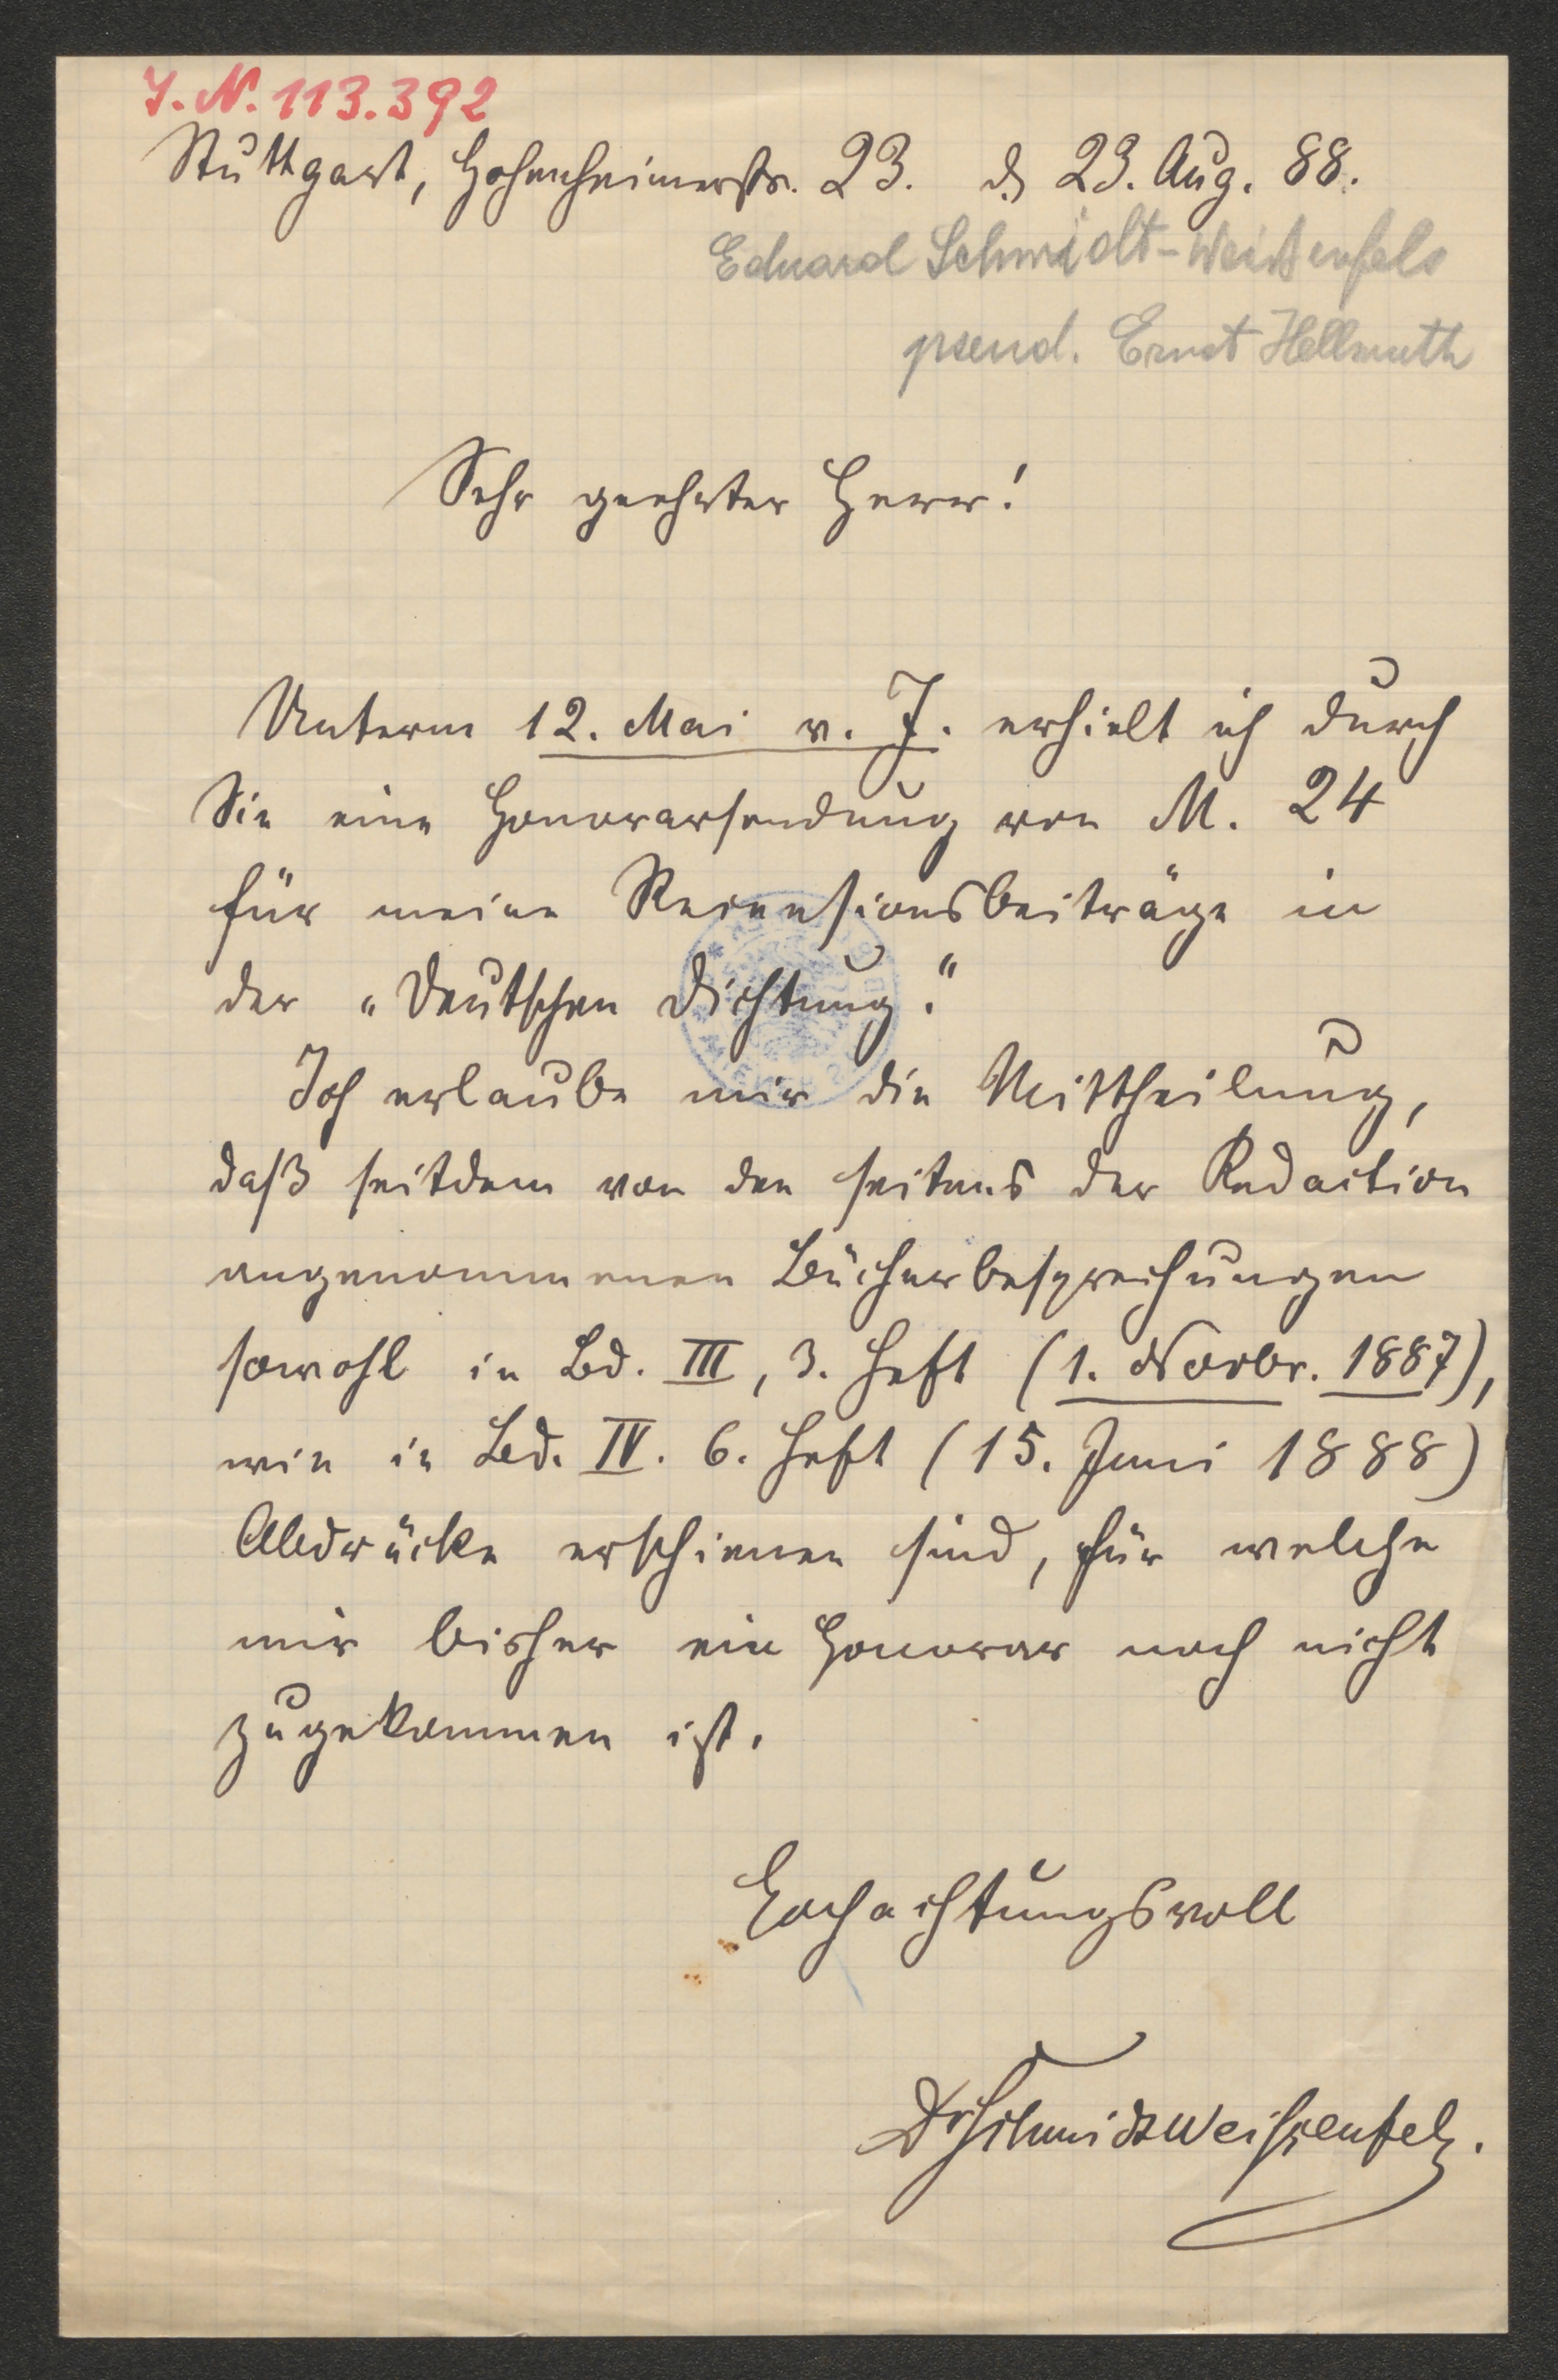 I. N. 113.392
Stuttgart, Hohenheimerstr. 23. d. 23. Aug. 88.
Eduard Schmidt-Weißenfels
pseud. Ernst Hellmuth
Sehr geehrter Herr!
Unterm 12. Mai v. J. erhielt ich durch
Sie eine Honorarsendung von M. 24
für meine Recensionsbeiträge in
der "Deutschen Dichtung".
Ich erlaube mir die Mittheilung,
daß seitdem von den seitens der Redaction
angenommenen Bücherbesprechungen
sowohl in Bd. III, 3. Heft (1. Novbr. 1887),
wie in Bd. IV. 6. Heft (15. Juni 1888)
Abdrücke erschienen sind, für welche
mir bisher ein Honorar noch nicht
zugekommen ist.
Hochachtungsvoll
Dr Schmidt Weißenfels.